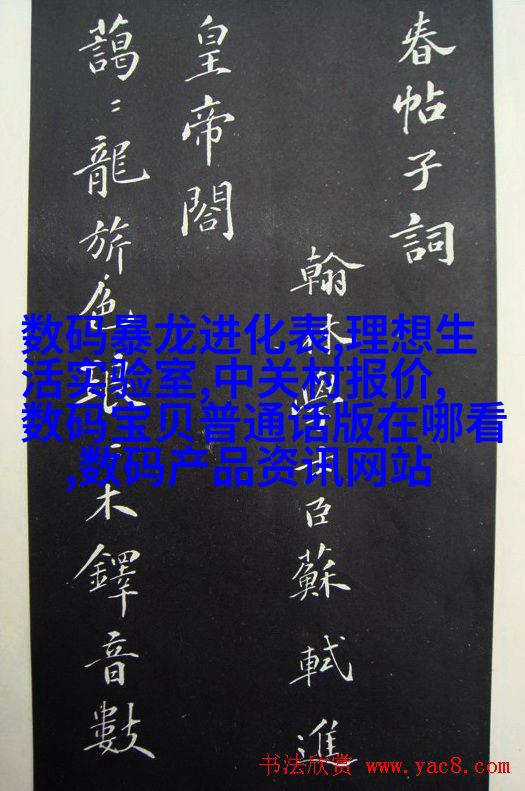 春帖子詞
翰林學士臣蘇軾進
皇帝閤
藹〻龍旂色琅〻木鐸音數
数码暴龙进化表,理想生
活实验室,中关村报价,
数码宝贝普通话版在哪看
,数码产品资讯网站
书法欣赏 www.yac8.com